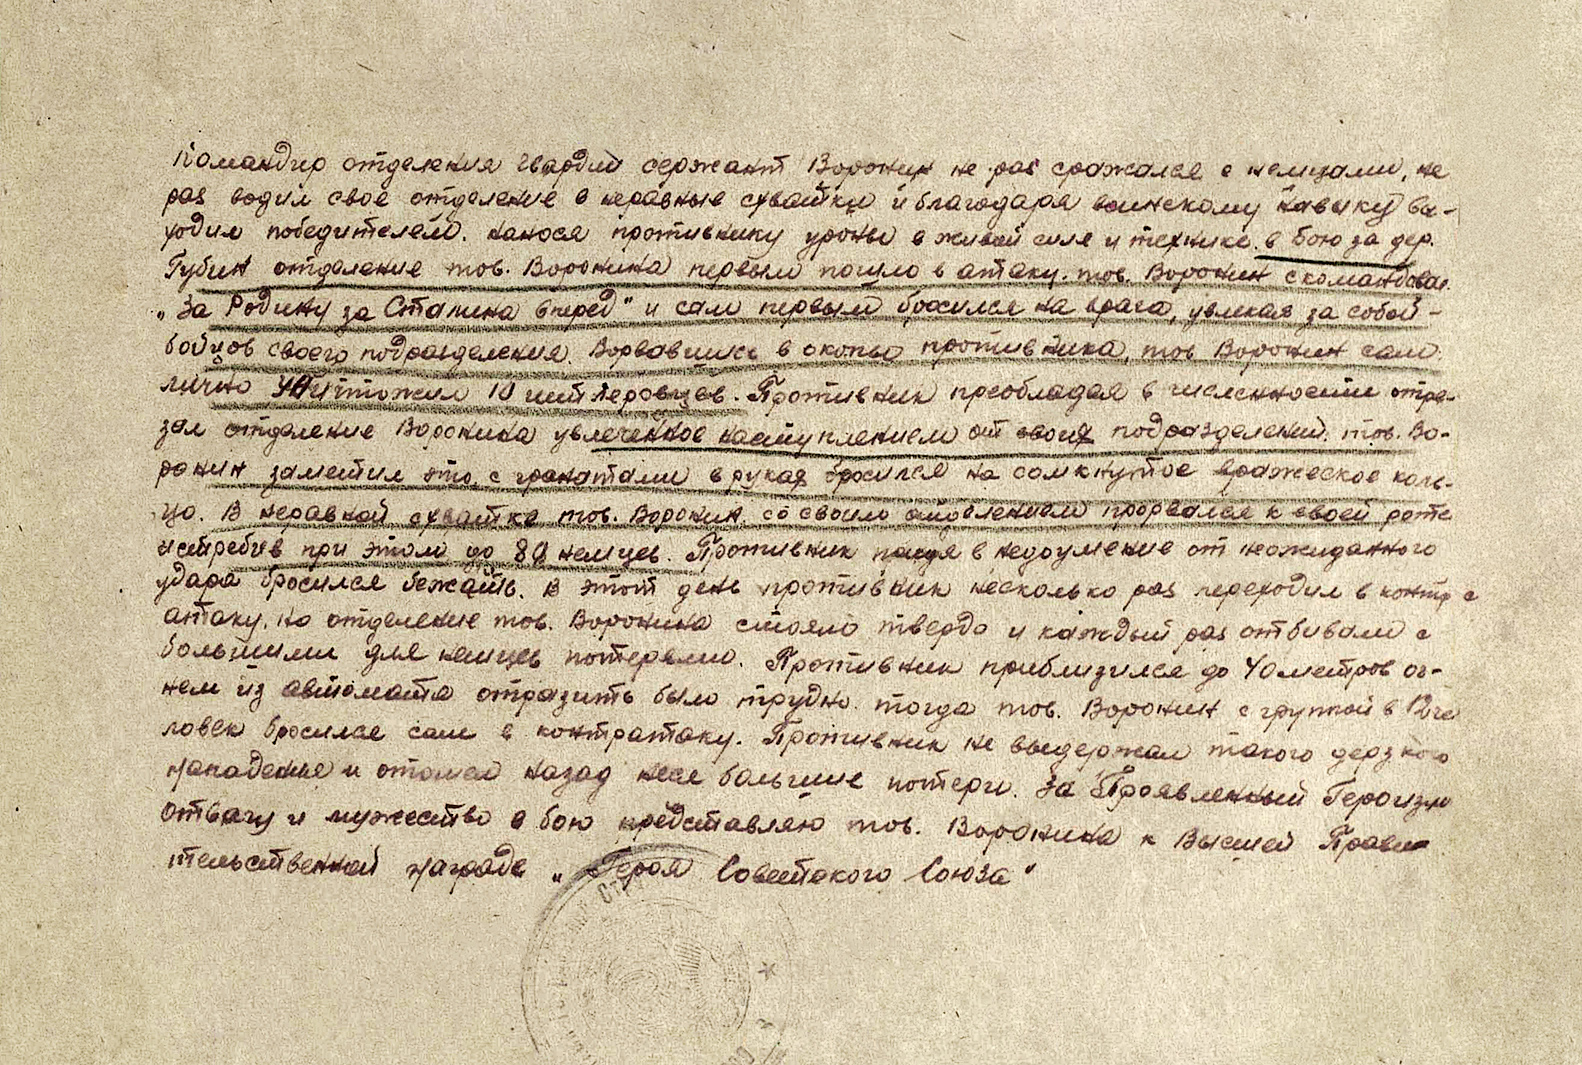 Командир отделения гвардии сержант Воронин не раз сражался с немцами, не
раз водил свое отделение в неравные схватки и благодаря воинскому навыку вы-
ходил победителем. нанося противнику уроны в живой силе и технике. в бою за дер.
Губин отделение тов. Воронина первым пошло в атаку. тов. Воронин скомандовал
„За Родину за Сталина вперед" и сам первым бросился на врага, увлекая за собой-
бойцов своего подразделения. Ворвавшись в окопы противника, тов Воронин сам
лично уничтожил 10 гитлеровцев. Противник преобладая в численности отре-
зал отделение Воронина увлеченное наступлением от своих подразделений. тов. Во-
ронин заметил это, с гранатами в руках бросился на сомкнутое вражеское коль-
цо. В неравной схватке тов. Воронин со своим отделением прорвался к своей роте
истребив при этом до 80 немцев. Противник в недоумение от неожиданного
удара бросился бежать. В этот день противник несколько раз переходил в контр
атаку, но отделение тов. Воронина стояло твердо и каждый раз отбивали с
большими для немцев потерями. Противник приблизился до 40 метров ог-
нем из автомата отразить было трудно. тогда тов. Воронин с группой в 12 че
ловек бросился сам в контратаку. Противник не выдержал такого дерзкого
нападение и отошел назад неся большие потери. За Проявленный Героизм
отвагу и мужество в бою представляю тов. Воронина к Высшей Прави
тельственной награде „Героя Советского Союза"